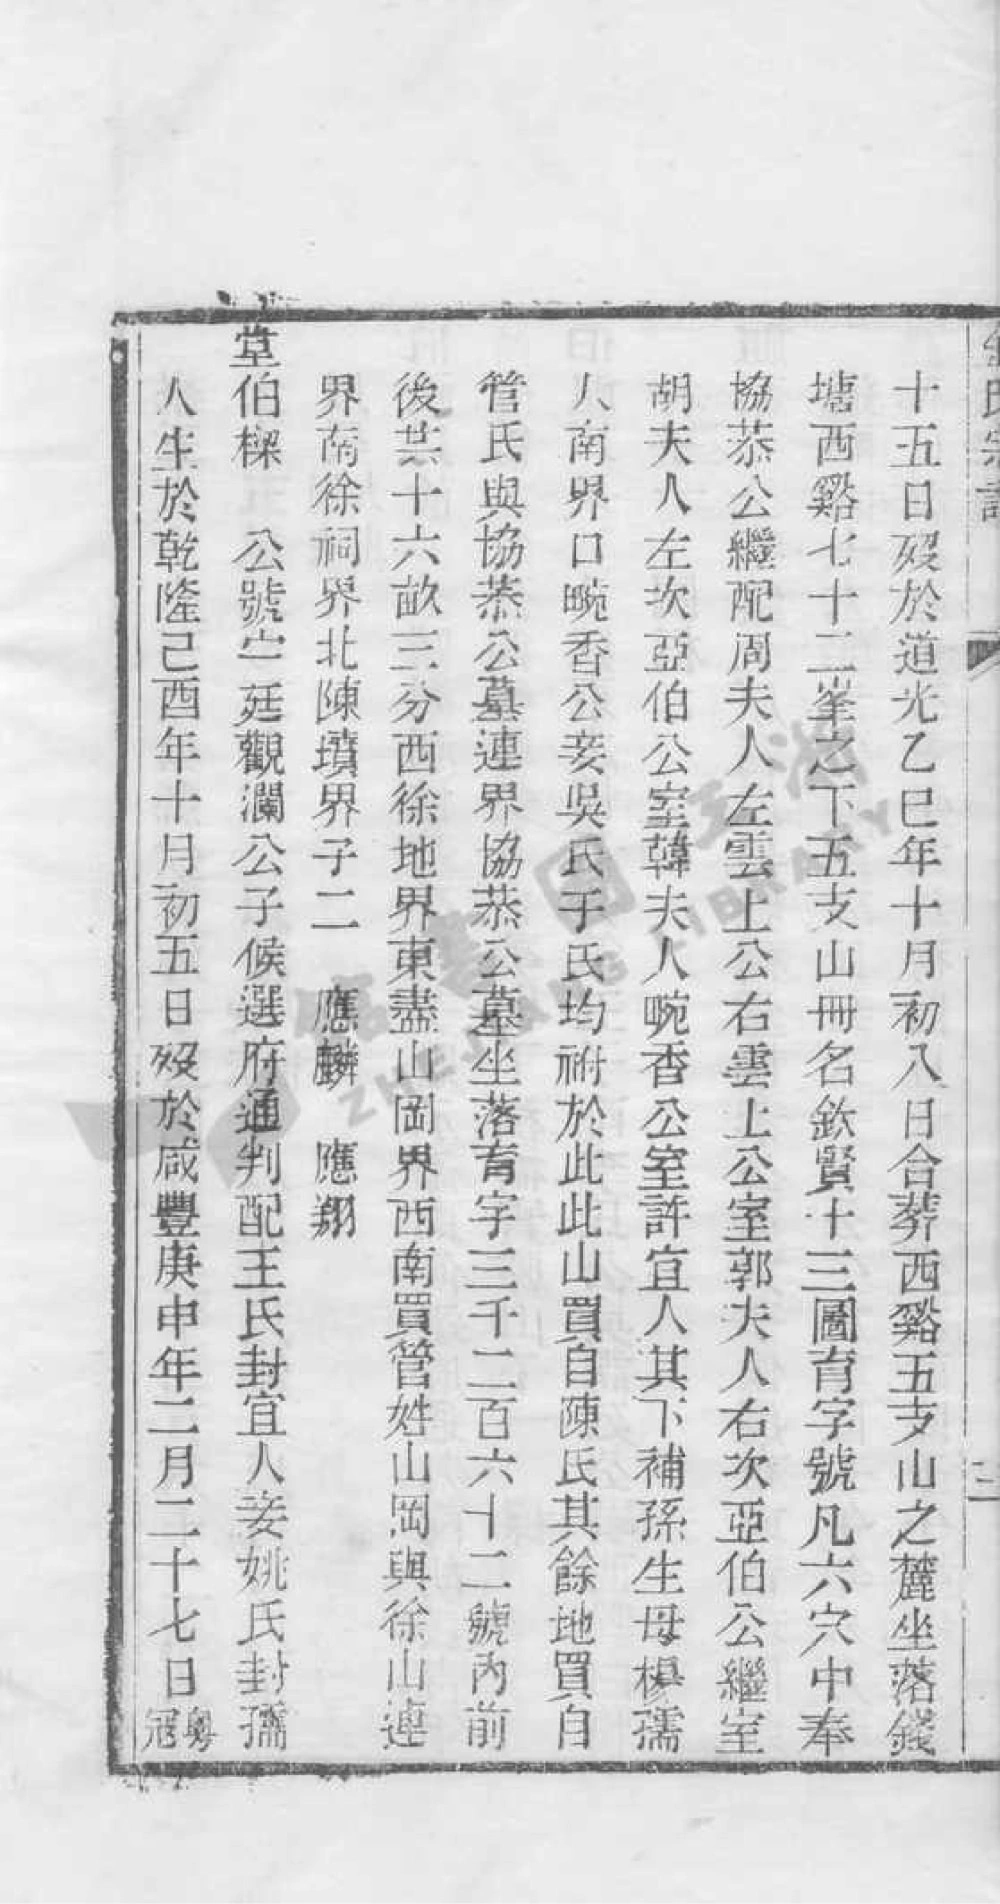 氏宗譜
十五日歿於道光乙巳年十月初八日合葬西谿五支山之麓坐落錢
塘西谿七十二峯之下五支山冊名欽賢十三圖育字號凡六穴中奉
協恭公繼配周夫人左雲上公右雲上公室郭夫人右次亞伯公繼室
胡夫人左次亞伯公室韓夫人畹香公室許宜人其下補孫生母楊孺
人南界口畹香公妾吳氏于氏均祔於此此山買自陳氏其餘地買自
管氏與協恭公墓連界協恭公墓坐落育字三千二百六十二號內前
後共十六畝三分西徐地界東盡山岡界西南買管姓山岡與徐山連
界南徐祠界北陳墳界子二 應麟 應翔
堂伯樑 公號 廷觀瀾公子候選府通判配王氏封宜人妾姚氏封孺
人生於乾隆己酉年十月初五日歿於咸豐庚申年二月二十七日粵寇
二
浙江圖書館
ZHEJIANG LIBRARY